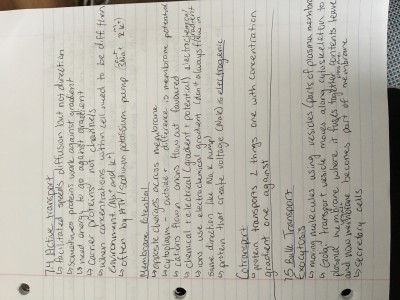 7.4 Active transport
↳ facilitated speeds diffusion but not direction
↳ membrane proteins work against gradient
↳ need energy to go against gradient
↳ carrier proteins not channels
↳ when concentrations within cell need to be diff from
environment (Na+ and K+)
↳ often by ATP (sodium potassium pump
Membrane Potential
↳ opposite charges across membrane
↳ cytoplasm - outside + difference is membrane potential
↳ cations flow in anions flow out favoured
↳ chemical + electrical (gradient + potential) electrochemical
↳ ions use electrochemical gradient (don't always flow in
same direction like Na+ K+ pump)
↳ protein that creates voltage (Na+K) is electrogenic
Cotransport
↳ protein transports 2 things one with concentration
gradient one against
7.5 Bulk Transport
Exocytosis
↳ moving molecules using vesicles (parts of plasma membrane)
↳ Golgi transport vesicle moves along cytoskeleton to
plasma membrane where it fuses together contents leave
and now membrane becomes part of plasma
membrane
↳ secretory cells